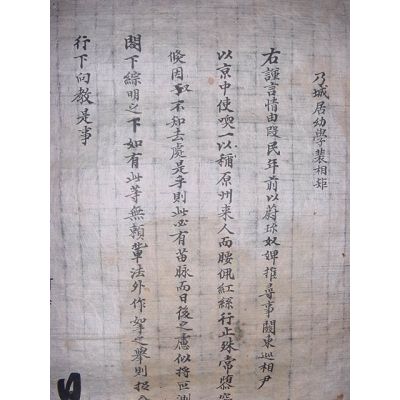 乃城居幼學裴相矩
右謹言情由段民年前以蔚珍奴婢推尋事關東巡相尹
以京中使喚一以稱原州來人而腰佩紅絲行止殊常
倏因 不知去處是乎則此必有苗脉而日後之慮似將叵測
閤下綜明之下如有此等無賴輩法外作 之舉則
行下向教是事